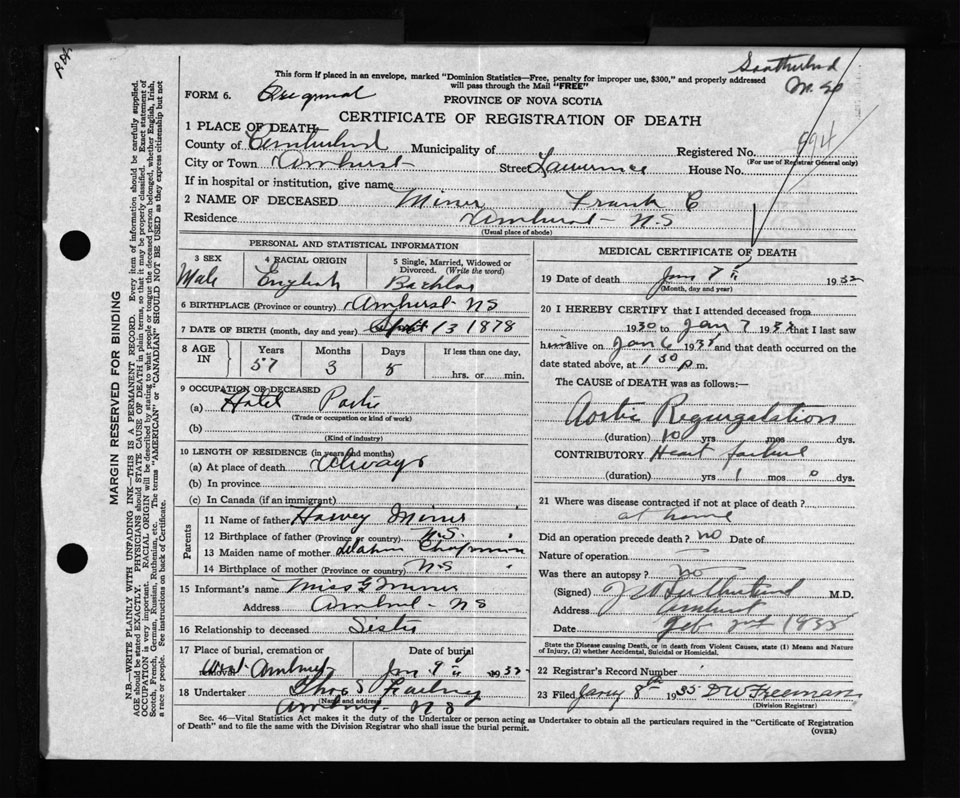 This form if placed in an envelope, marked "Dominion Statistics—Free, penalty for improper use, $300," and properly addressed
will pass through the Mail "FREE"
FORM 6.
PROVINCE OF NOVA SCOTIA
CERTIFICATE OF REGISTRATION OF DEATH
1 PLACE OF DEATH
County of Cumberland Municipality of Registered No. 994
(For use of Registrar General only)
City or Town Amherst Street Lawrence House No.
If in hospital or institution, give name
2 NAME OF DECEASED Miner Frank C
Residence Amherst N S
(Usual place of abode)
PERSONAL AND STATISTICAL INFORMATION
3 SEX Male
4 RACIAL ORIGIN English
5 Single, Married, Widowed or Divorced. (Write the word) Bachlor
6 BIRTHPLACE (Province or country) Amherst NS
7 DATE OF BIRTH (month, day and year) 13 1878
8 AGE IN
Years 57
Months 3
Days 5
If less than one day,
hrs. or min.
9 OCCUPATION OF DECEASED
(a) Hotel Porter
(Trade or occupation or kind of work)
(b)
(Kind of industry)
10 LENGTH OF RESIDENCE (in years and months)
(a) At place of death Always
(b) In province
(c) In Canada (if an immigrant)
Parents
11 Name of father Harvey Miner
12 Birthplace of father (Province or country) N.S.
13 Maiden name of mother Chapman
14 Birthplace of mother NS
15 Informant's name Miss G Miner
Address Amherst NS
16 Relationship to deceased Sister
17 Place of burial, cremation or removal Amherst
Date of burial Jan 9
18 Undertaker Thos S
(Name and address)
Amherst N S
MEDICAL CERTIFICATE OF DEATH
19 Date of death Jan 7 193
(Month, day and year)
20 I HEREBY CERTIFY that I attended deceased from
1930 to Jan 7 193 that I last saw
him alive on Jan 6 193 and that death occurred on the
date stated above, at 1 30 p.m.
The CAUSE of DEATH was as follows:—
Aortic Regurgitation
(duration) 10 yrs mos dys.
CONTRIBUTORY Heart failure
(duration) yrs 1 mos 0 dys.
21 Where was disease contracted if not at place of death?
at home
Did an operation precede death? no Date of
Nature of operation
Was there an autopsy? no
(Signed) M.D.
Address Amherst
Date
State the Disease causing Death, or in death from Violent Causes, state (1) Means and Nature
of Injury, (2) whether Accidental, Suicidal or Homicidal.
22 Registrar's Record Number
23 Filed 8th 1935 D W Freeman
(Division Registrar)
Sec. 46—Vital Statistics Act makes it the duty of the Undertaker or person acting as Undertaker to obtain all the particulars required in the "Certificate of Registration
of Death" and to file the same with the Division Registrar who shall issue the burial permit.
(OVER)
MARGIN RESERVED FOR BINDING
N.B.—WRITE PLAINLY WITH UNFADING INK—THIS IS A PERMANENT RECORD. Every item of information should be carefully supplied.
AGE should be stated EXACTLY. PHYSICIANS should STATE CAUSE OF DEATH in plain terms, so that it may be properly classified. Exact statement of
OCCUPATION is very important. RACIAL ORIGIN will be described by stating to what people or tongue the deceased person belonged, whether English, Irish,
Scotch, French, German, Russian, Ruthenian, etc. The terms "AMERICAN" or "CANADIAN" SHOULD NOT BE USED as they express citizenship but not
a race or people. See instructions on back of Certificate.